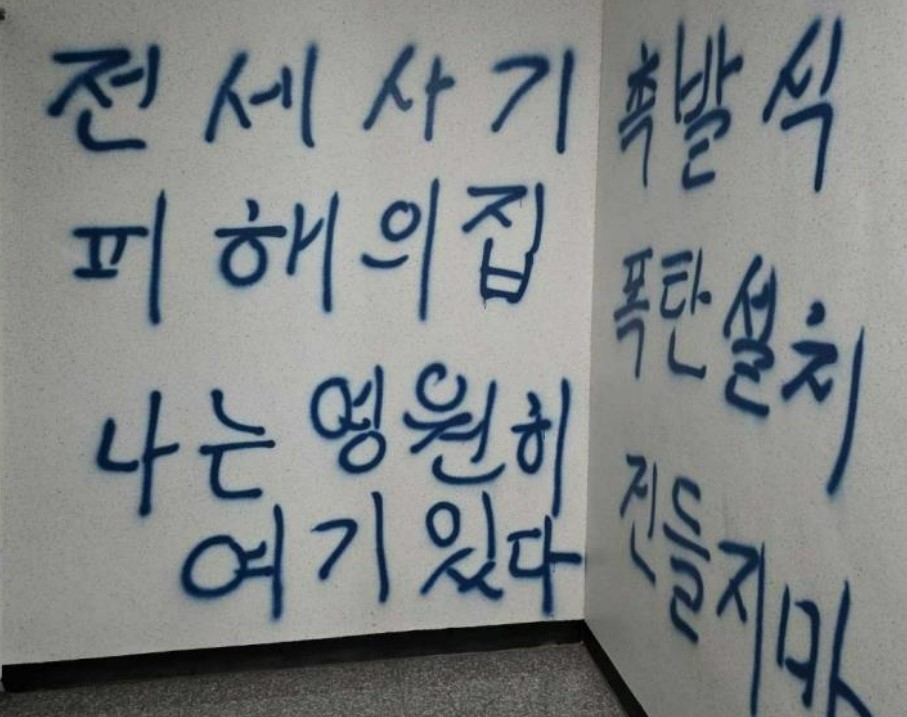 전세사기
피해의집
나는영원히
여기있다
촉발식
폭탄설치
진들지마